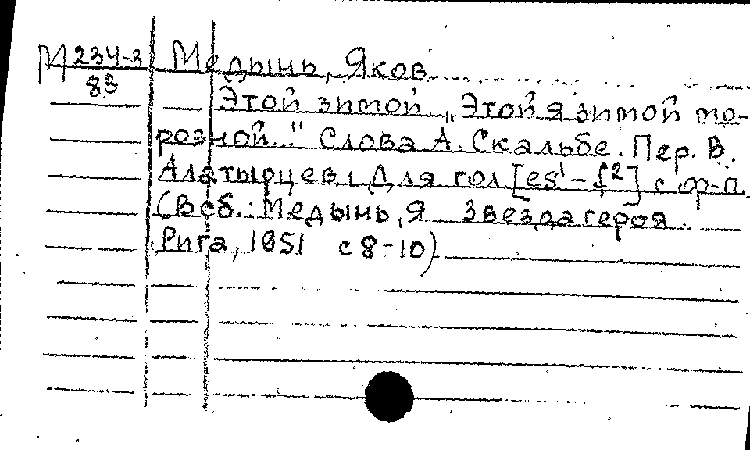 М 234-2 Медынь, Яков
83
Этой зимой "Этой я зимой мо-
розной..." Слова А. Скальбе. Пер. В.
Алатырцев. Для гол [es¹-f²] с ф-п.
(В сб.: Медынь, Я Звезда героя.
Рига, 1951 с 8-10)